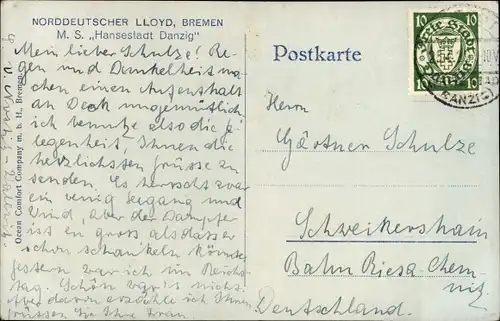 NORDDEUTSCHER LLOYD, BREMEN
M. S. „Hansestadt Danzig"
Mein lieber Schulze! Re-
gen und Dunkelheit ma-
chen einen Aufenthalt
an Deck ungemütlich,
ich benutze also die Ge-
legenheit, Ihnen die
herzlichsten Grüsse zu
senden. Es herrscht zwar
ein wenig Seegang und
Wind, aber der Dampfer
ist zu gross als dass er
schon schaukeln könnte.
Gestern war ich im Reichs-
tag. Schön war's nicht.
Aber davon erzähle ich Ihnen
Grüssen Sie Ihre Frau.
Ocean Comfort Company m. b. H., Bremen
Postkarte
10 10
Freie Stadt
Danzig
10 10
(DANZIG)
Herrn
Gärtner Schulze
Schweikershain
Bahn Riesa-Chem-
nitz
Deutschland.